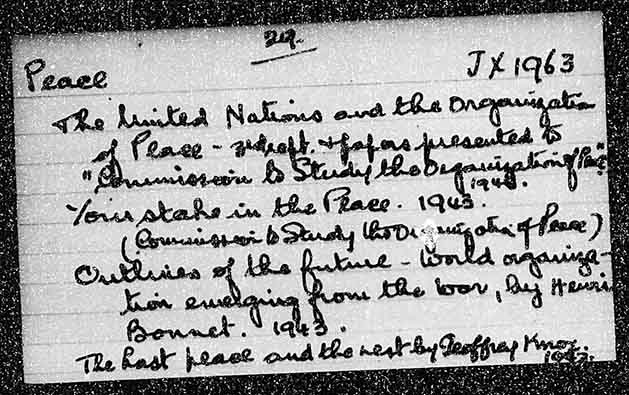 219.
Peace JX1963
The United Nations and the Organization
of Peace - 3d rept. & papers presented to
"Commission to Study the Organization of Peace"
1943.
Your stake in the Peace. 1943.
(Commission to Study the Organization of Peace)
Outlines of the future - World organiza-
tion emerging from the war, by Henri
Bonnet. 1943.
The last peace and the next by Geoffrey Knox.